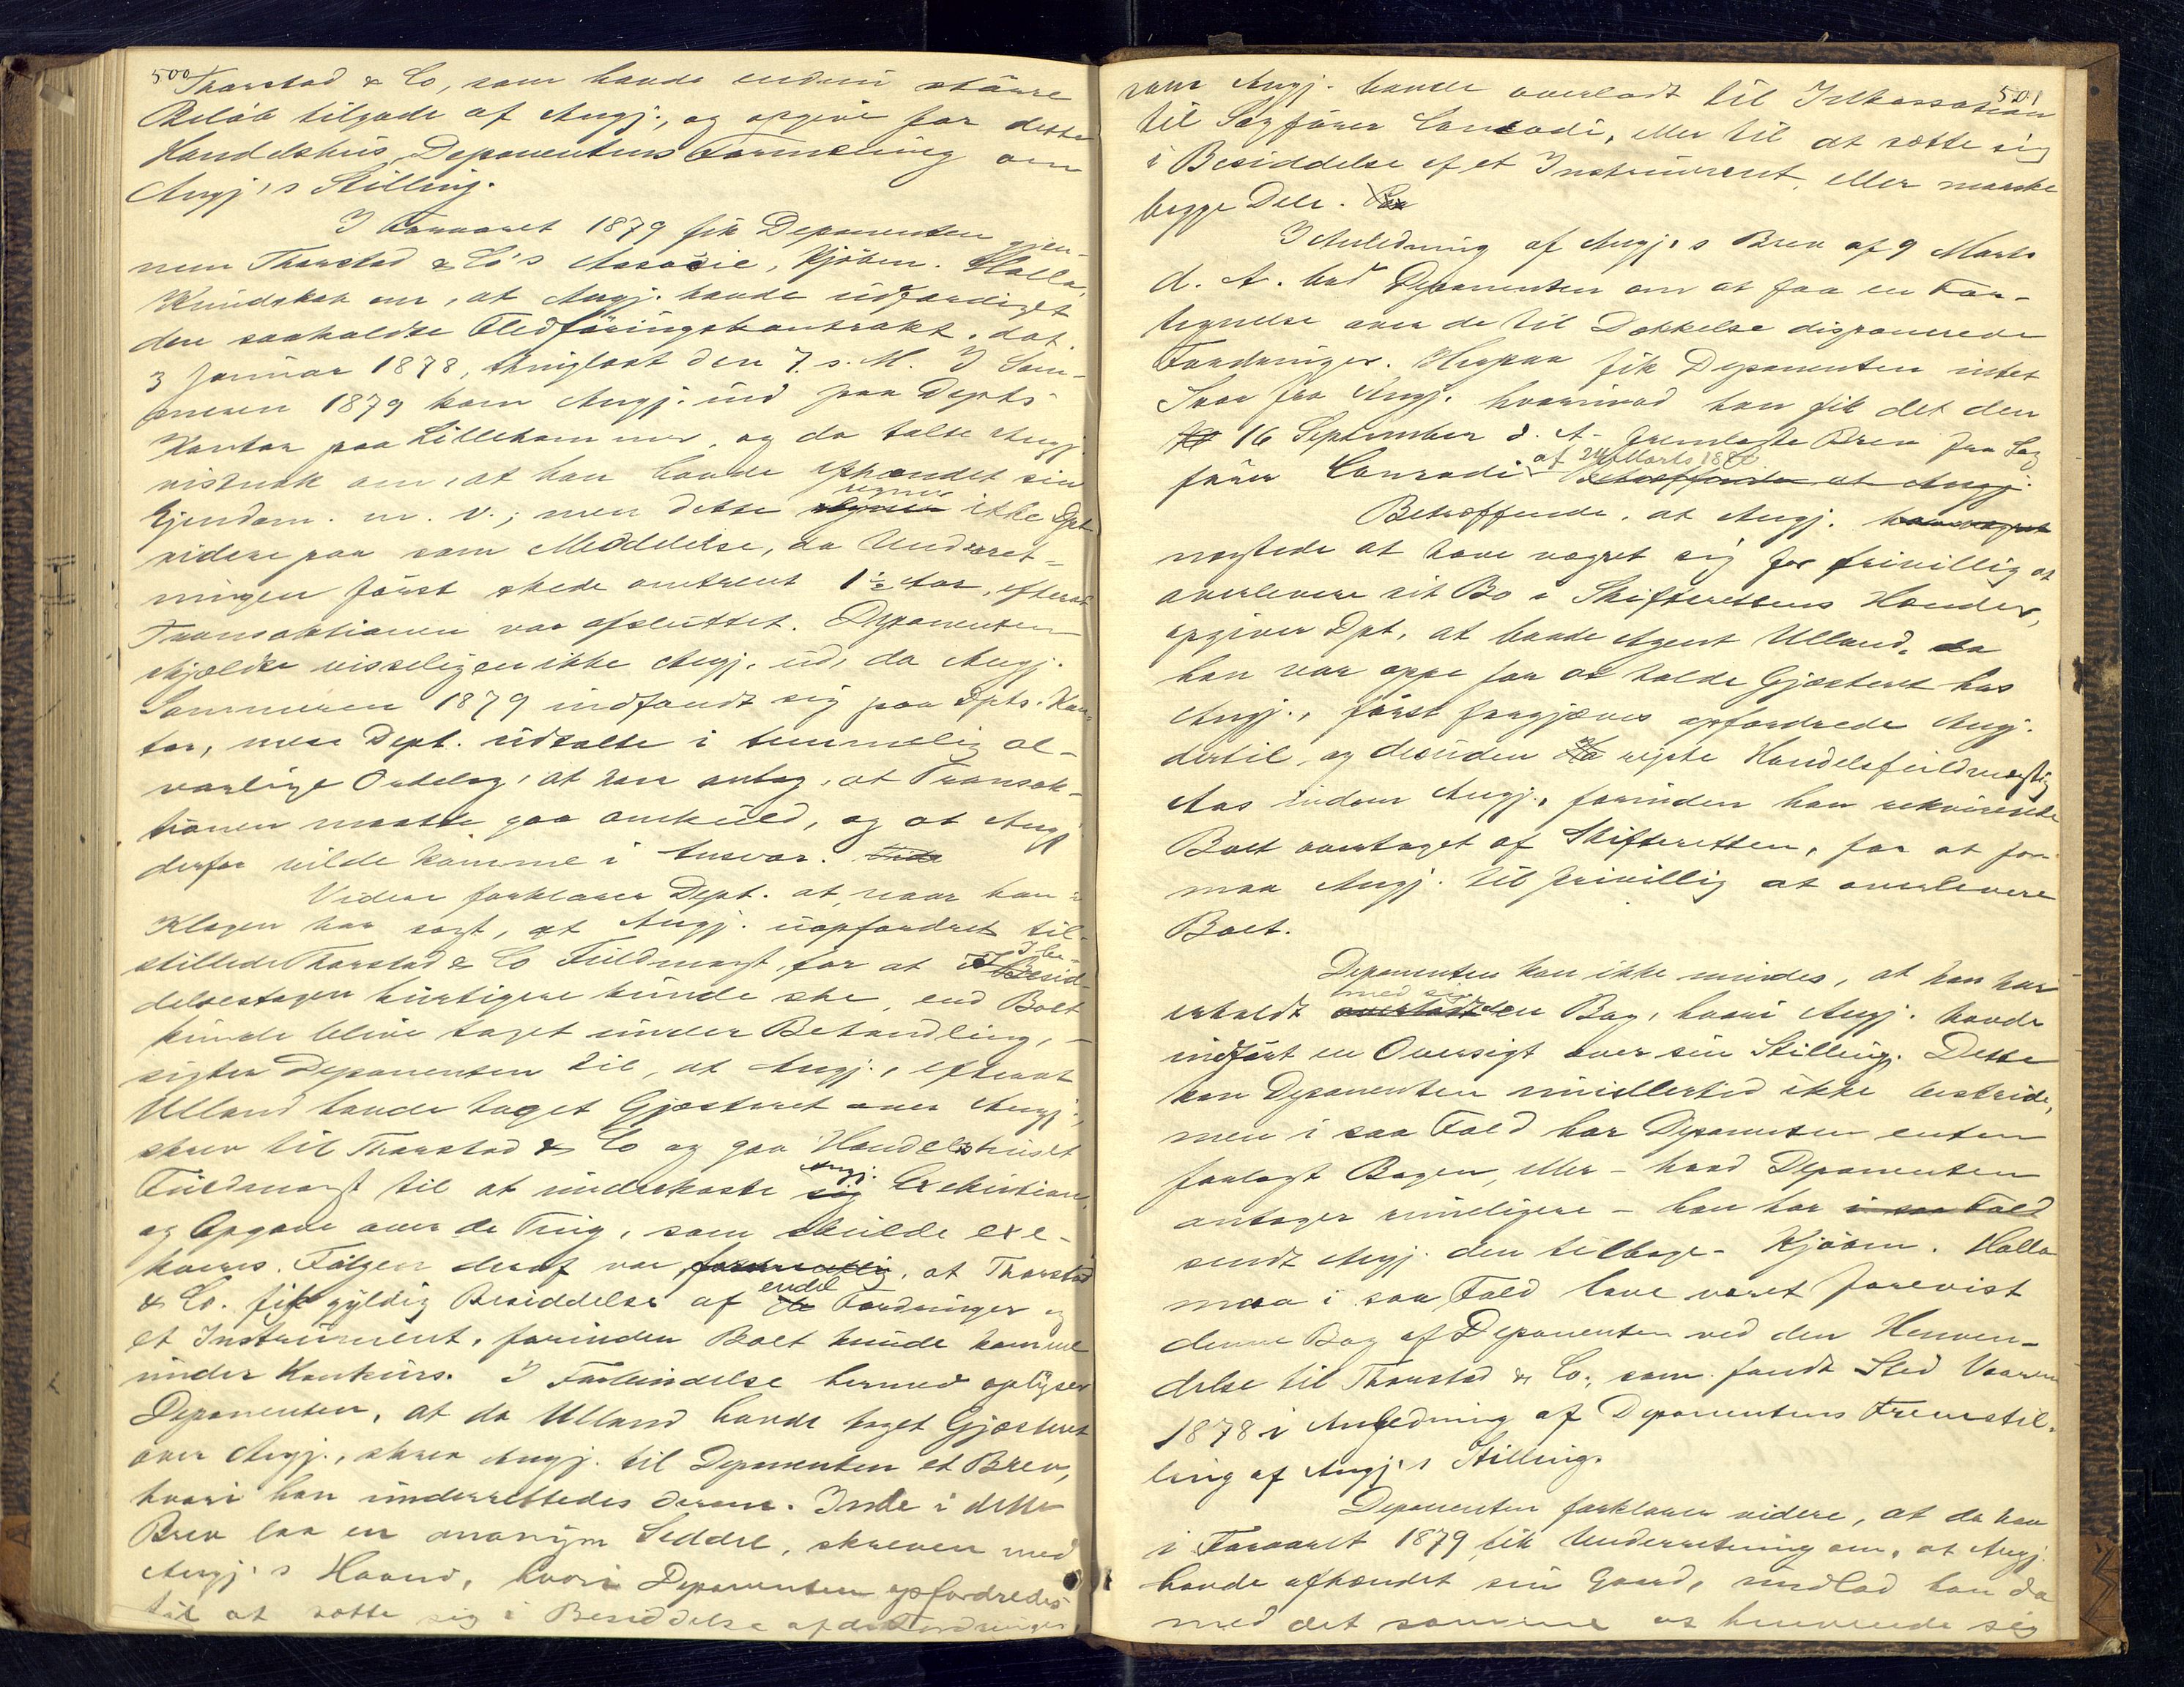 500
Thorstad & Co, som havde endnu större
Beløb tilgode af Angj., og opgive for dette
Handelshus Deponentens Formening om
Angj.s Stilling.
I Foraaret 1879 fik Deponenten gjen-
nem Thorstad & Co's Associe, Kjöbm. Holla
Kundskab om, at Angj. havde udfærdiget
den saakaldte Fledföringskontrakt, dat.
3 Januar 1878, thinglæst den 7. s. M. I Som-
meren 1879 kom Angj. ind paa Depts
Kontor paa Lillehammer, og da talte Angj.
vistnok om, at han havde afhændet sin
Ejendom m. v.; men dette regner ikke Dpt
videre paa som Meddelelse, da Underret-
ningen först skede omtrent 1½ Aar, efterat
Transaktionen var afsluttet. Deponenten
skjældte visseligen ikke Angj. ud, da Angj.
Sommeren 1879 indfandt sig paa Dpts. Kon-
tor, men Dept. udtalte i temmelig al-
vorlige Ordelag, at han antog, at Transak-
tionen maatte gaa omkuld, og at Angj
derfor vilde komme i Ansvar.
Videre forklarer Dept. at, naar han i
Klagen har sagt, at Angj. uopfordret til-
stillede Thorstad & Co Fuldmagt, for at Ibe-
sid-
delsestagen hurtigere kunde ske, end Boet
kunde blive taget under Behandling, –
sigter Deponenten til, at Angj., efterat
Ulland havde taget Gjæsteret over Angj.,
skrev til Thorstad & Co og gav Handelshuset
Fuldmagt til at underkaste Angj. Exekution,
og Opgave over de Ting, som skulde exe-
kveres. Fölgen deraf var, at Thorstad
& Co. fik gyldig Besiddelse af endel Fordringer og
et Instrument, forinden Boet kunde komme
under Konkurs. I Forbindelse hermed oplyser
Deponenten, at da Ulland havde taget Gjæsteret
over Angj., skrev Angj. til Deponenten et Brev,
hvori han underrettedes derom. Inde i dette
Brev laa en anonym Seddel, skreven med
Angj.s Haand, hvori Deponenten opfordredes
til at sætte sig i Besiddelse af de Fordringer,
501
som Angj. havde overladt til Inkassation
til Sagfører Conradi, eller til at sætte sig
i Besiddelse af et Instrument, eller maaske
begge Dele.
I Anledning af Angj.s Brev af 9 Marts
d. A. bad Deponenten om at faa en For-
tegnelse over de til Dækkelse disponerede
Fordringer. Herpaa fik Deponenten intet
Svar fra Angj. hvorimod han fik det den
16 September d. A. fremlagte Brev fra Sag
förer Conradi af 24 Marts 1880. Betræffende at Angj.
Betræffende, at Angj.
nægtede at have vægret sig for frivillig at
overlevere sit Bo i Skifterettens Hænder,
opgiver Dpt. at baade Agent Ulland, da
han var oppe for at holde Gjæsteret hos
Angj., först forgjæves opfordrede Angj.
dertil, og desuden reiste Handelsfuldmægtig
Aas indom Angj., forinden han rekvirerede
Boet overtaget af Skifteretten, for at for-
maa Angj. til frivillig at overlevere
Boet.
Deponenten kan ikke mindes, at han har
erholdt med sig den Bog, hvori Angj. havde
indfört en Oversigt over sin Stilling. Dette
kan Deponenten imidlertid ikke bestride,
men i saa Fald har Deponenten enten
forlagt Bogen, eller – hvad Deponenten
antager rimeligere – han har i saa Fald
sendt Angj. den tilbage. Kjöbm. Holla
maa i saa Fald have været forevist
denne Bog af Deponenten ved den Henven-
delse til Thorstad & Co., som fandt Sted Vaaren
1878 i Anledning af Deponentens Fremstil-
ling af Angj.s Stilling.
Deponenten forklarer videre, at da han
i Foraaret 1879 fik Underretning om, at Angj.
havde afhændet sin Gaard, undlod han da
med det samme at henvende sig